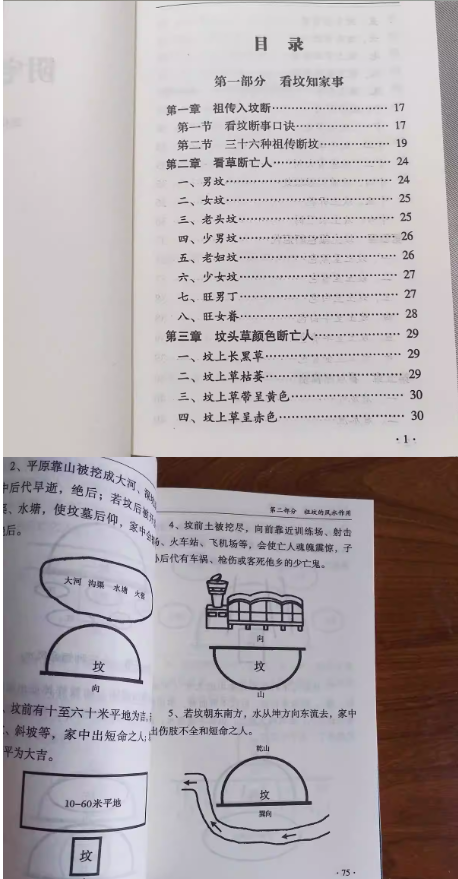 目录
第一部分 看坟知家事
第一章 祖传入坟断………17
第一节 看坟断事口诀………17
第二节 三十六种祖传断坟………19
第二章 看草断亡人………24
一、男坟………24
二、女坟………25
三、老头坟………25
四、少男坟………26
五、老妇坟………26
六、少女坟………27
七、旺男丁………27
八、旺女眷………28
第三章 坟头草颜色断亡人………29
一、坟上长黑草………29
二、坟上草枯萎………29
三、坟上草带呈黄色………30
四、坟上草呈赤色………30
·1·
2、平原靠山被挖成大河、
中后代早逝,绝后;若坟后被
、水塘,使坟墓后仰,家中
后。
大河 沟渠 水塘
坟
向
、坟前有十至六十米平地为吉,
、斜坡等,家中出短命之人;
平为大吉。
10-60米平地
坟
第二部分 祖坟的风水作用
4、坟前土被挖尽,向前靠近训练场、射击
、火车站、飞机场等,会使亡人魂魄震惊,子
孙后代有车祸、枪伤或客死他乡的少亡鬼。
向
坟
山
5、若坟朝东南方,水从坤方向东流去,家中
出伤肢不全和短命之人。
乾山
坟
巽向
·75·